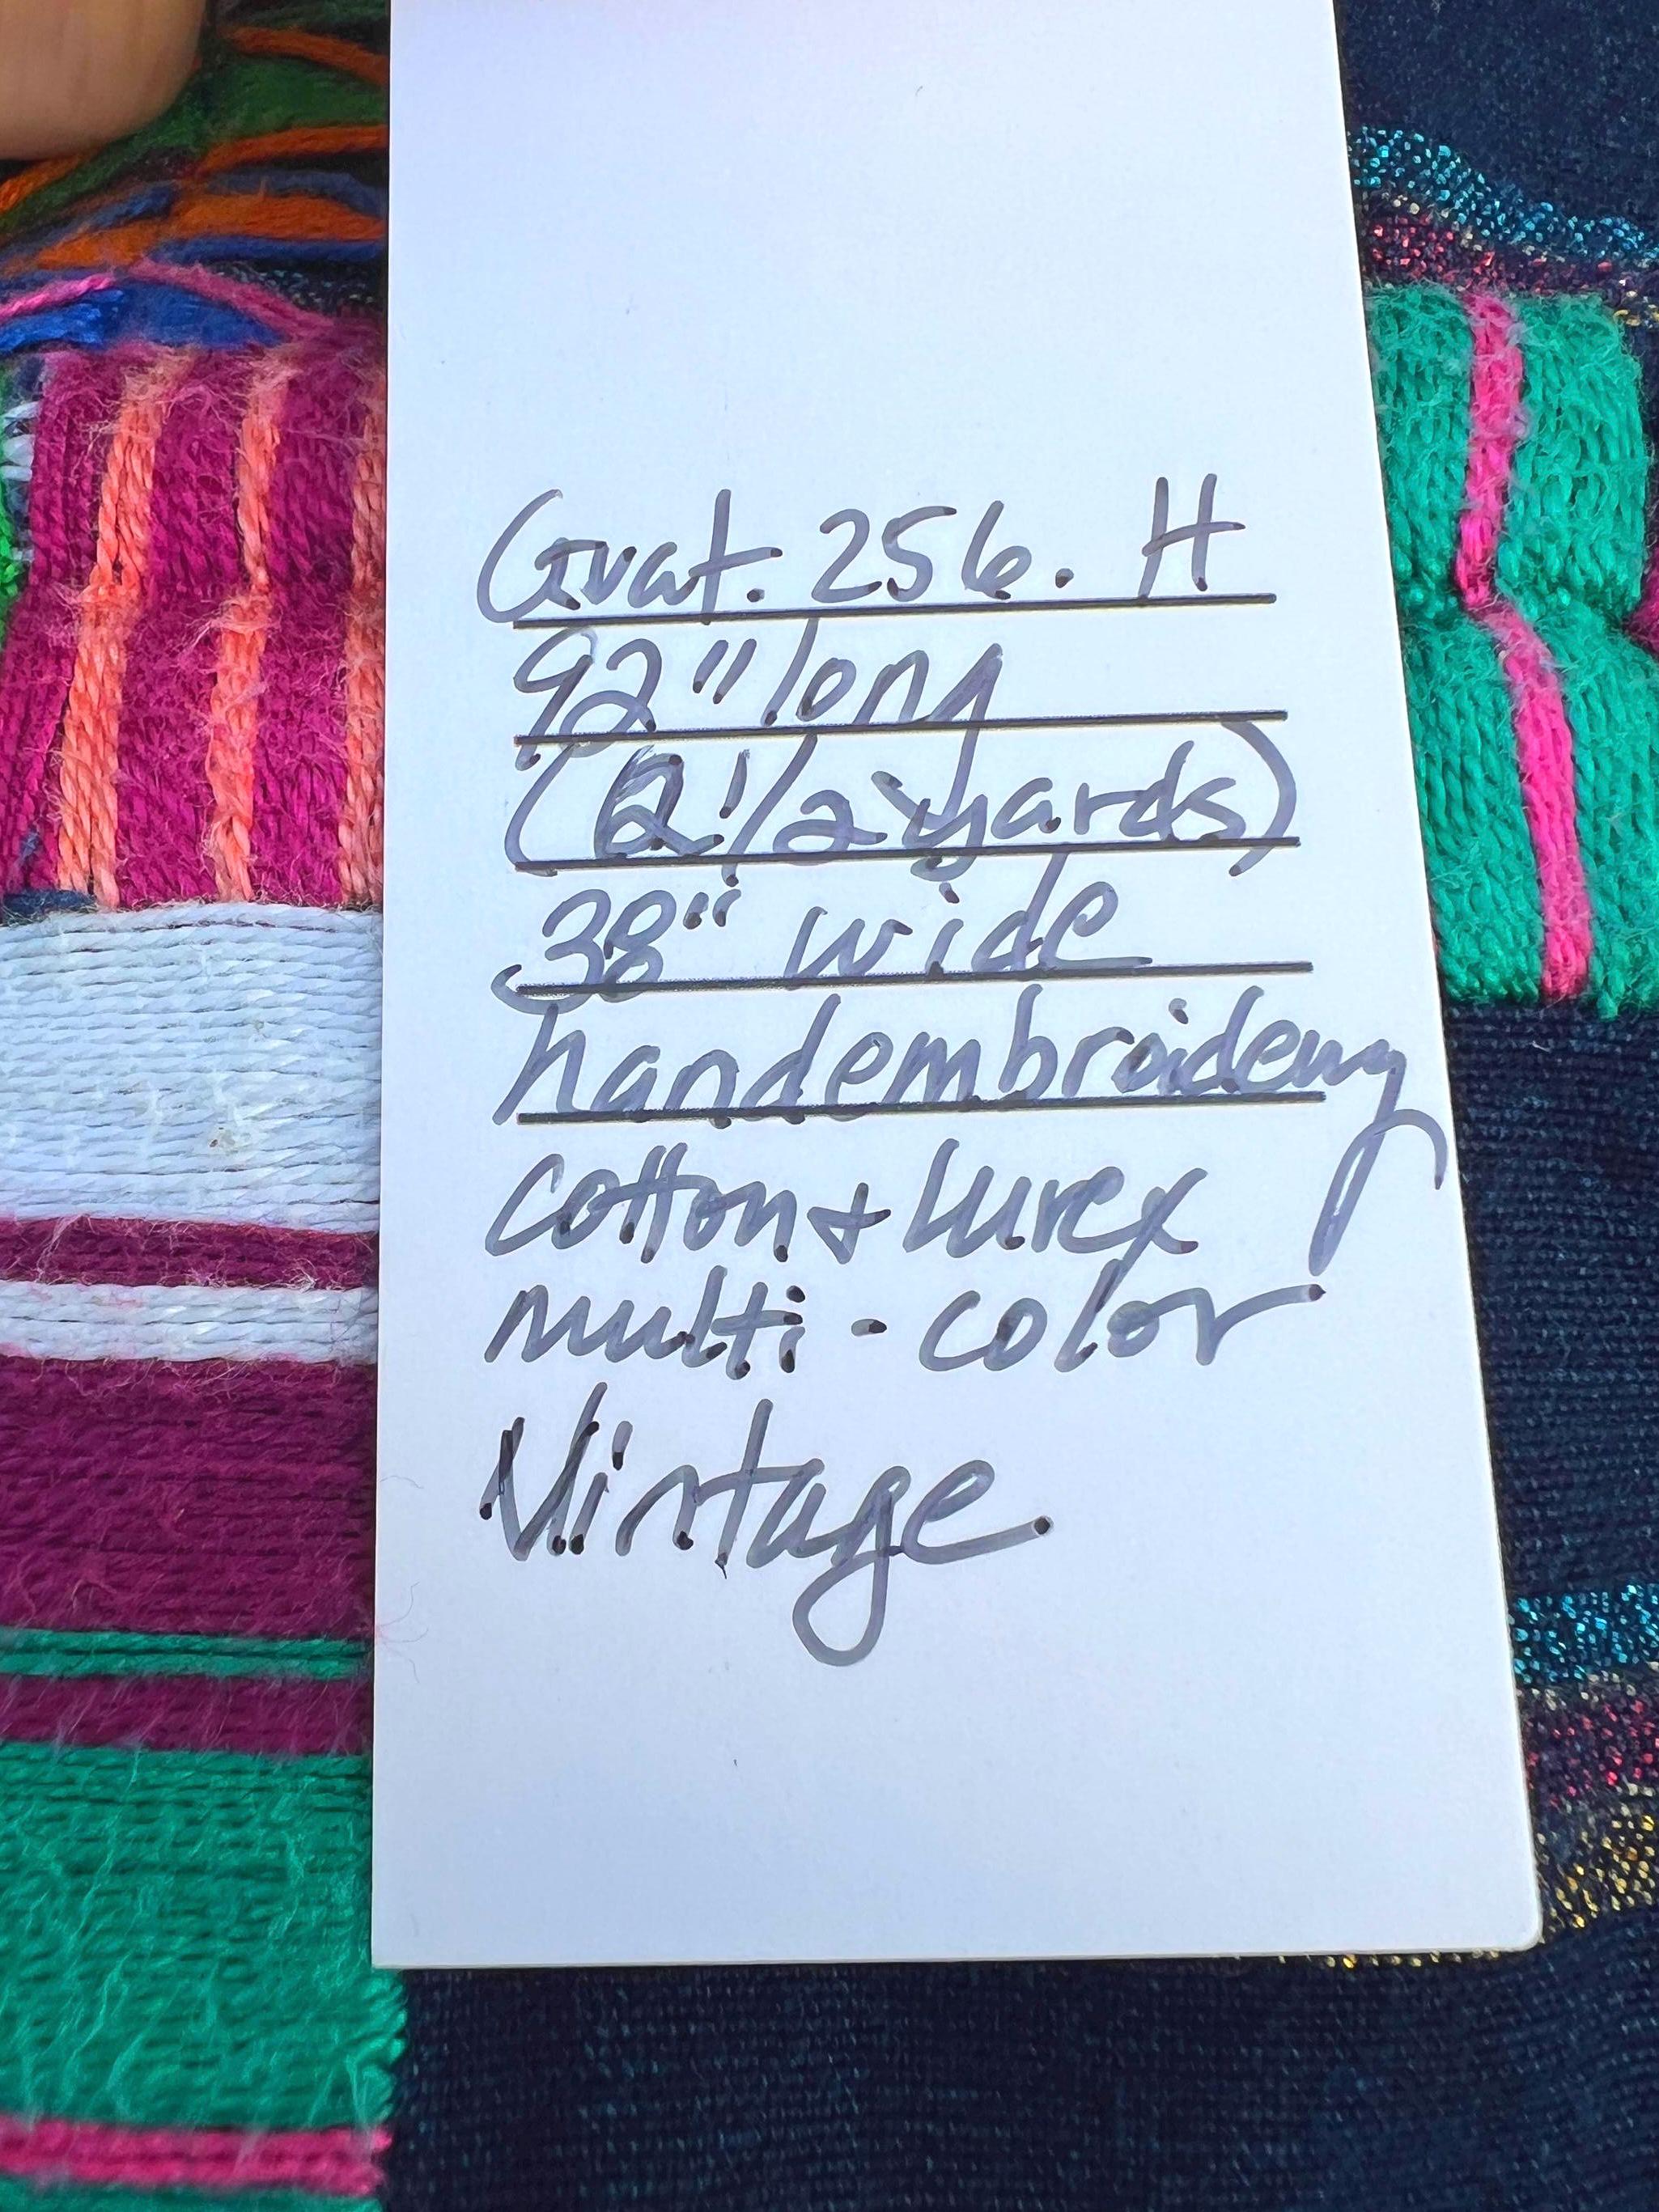 Guat. 256. H
92" long
(2 1/2 yards)
38" wide
handembroidery
cotton + lurex
multi - color
Vintage